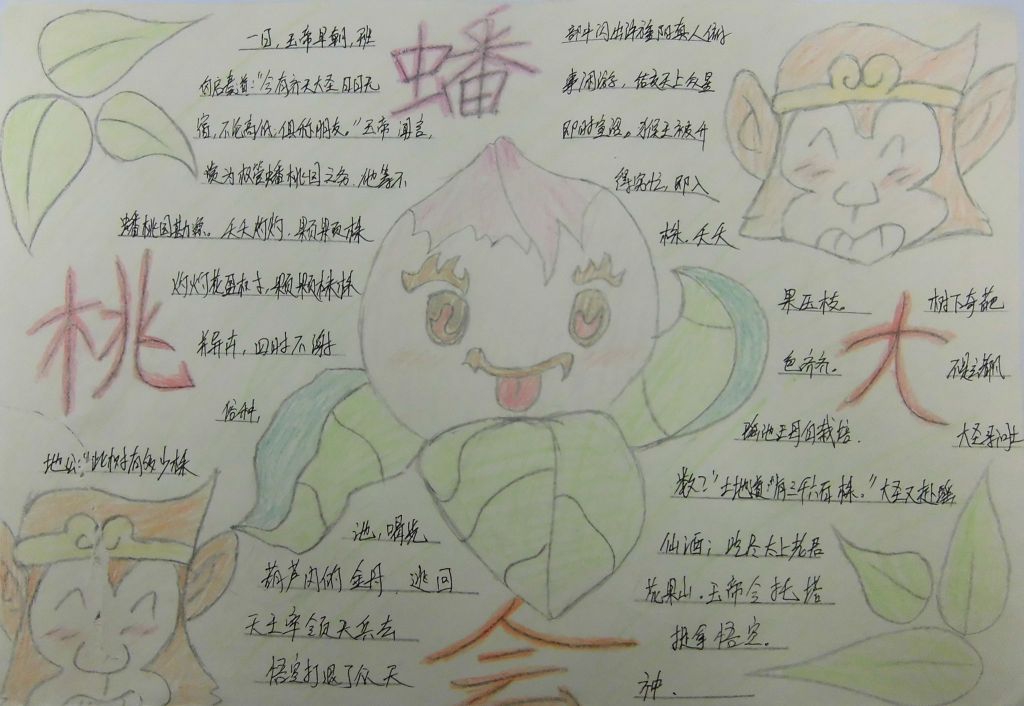 蟠
桃
大
会
一日,玉帝早朝,班
部中闪出许旌阳真人俯
内启奏道:"今有齐天大圣日日无
事闲游,结交天上众星
宿,不论高低,俱称朋友。"玉帝闻言,
即时宣诏。猴王被升
为权管蟠桃园之务,他等不
得穷忙,即入
蟠桃园勘察。夭夭灼灼,颗颗株
株。夭夭
灼灼花盈树,颗颗株株
果压枝。
树下奇葩
并异卉,四时不谢
色齐齐。
不是玄都凡
俗种,
瑶池王母自栽培.
大圣系问土
地公:"此树有多少株
数?"土地道:"有三千六百株。"大圣又赴瑶
池,喝光
仙酒;吃尽太上老君
葫芦内的金丹,逃回
花果山.玉帝令托塔
天王率领天兵去
捉拿悟空.
悟空打退了众天
神.